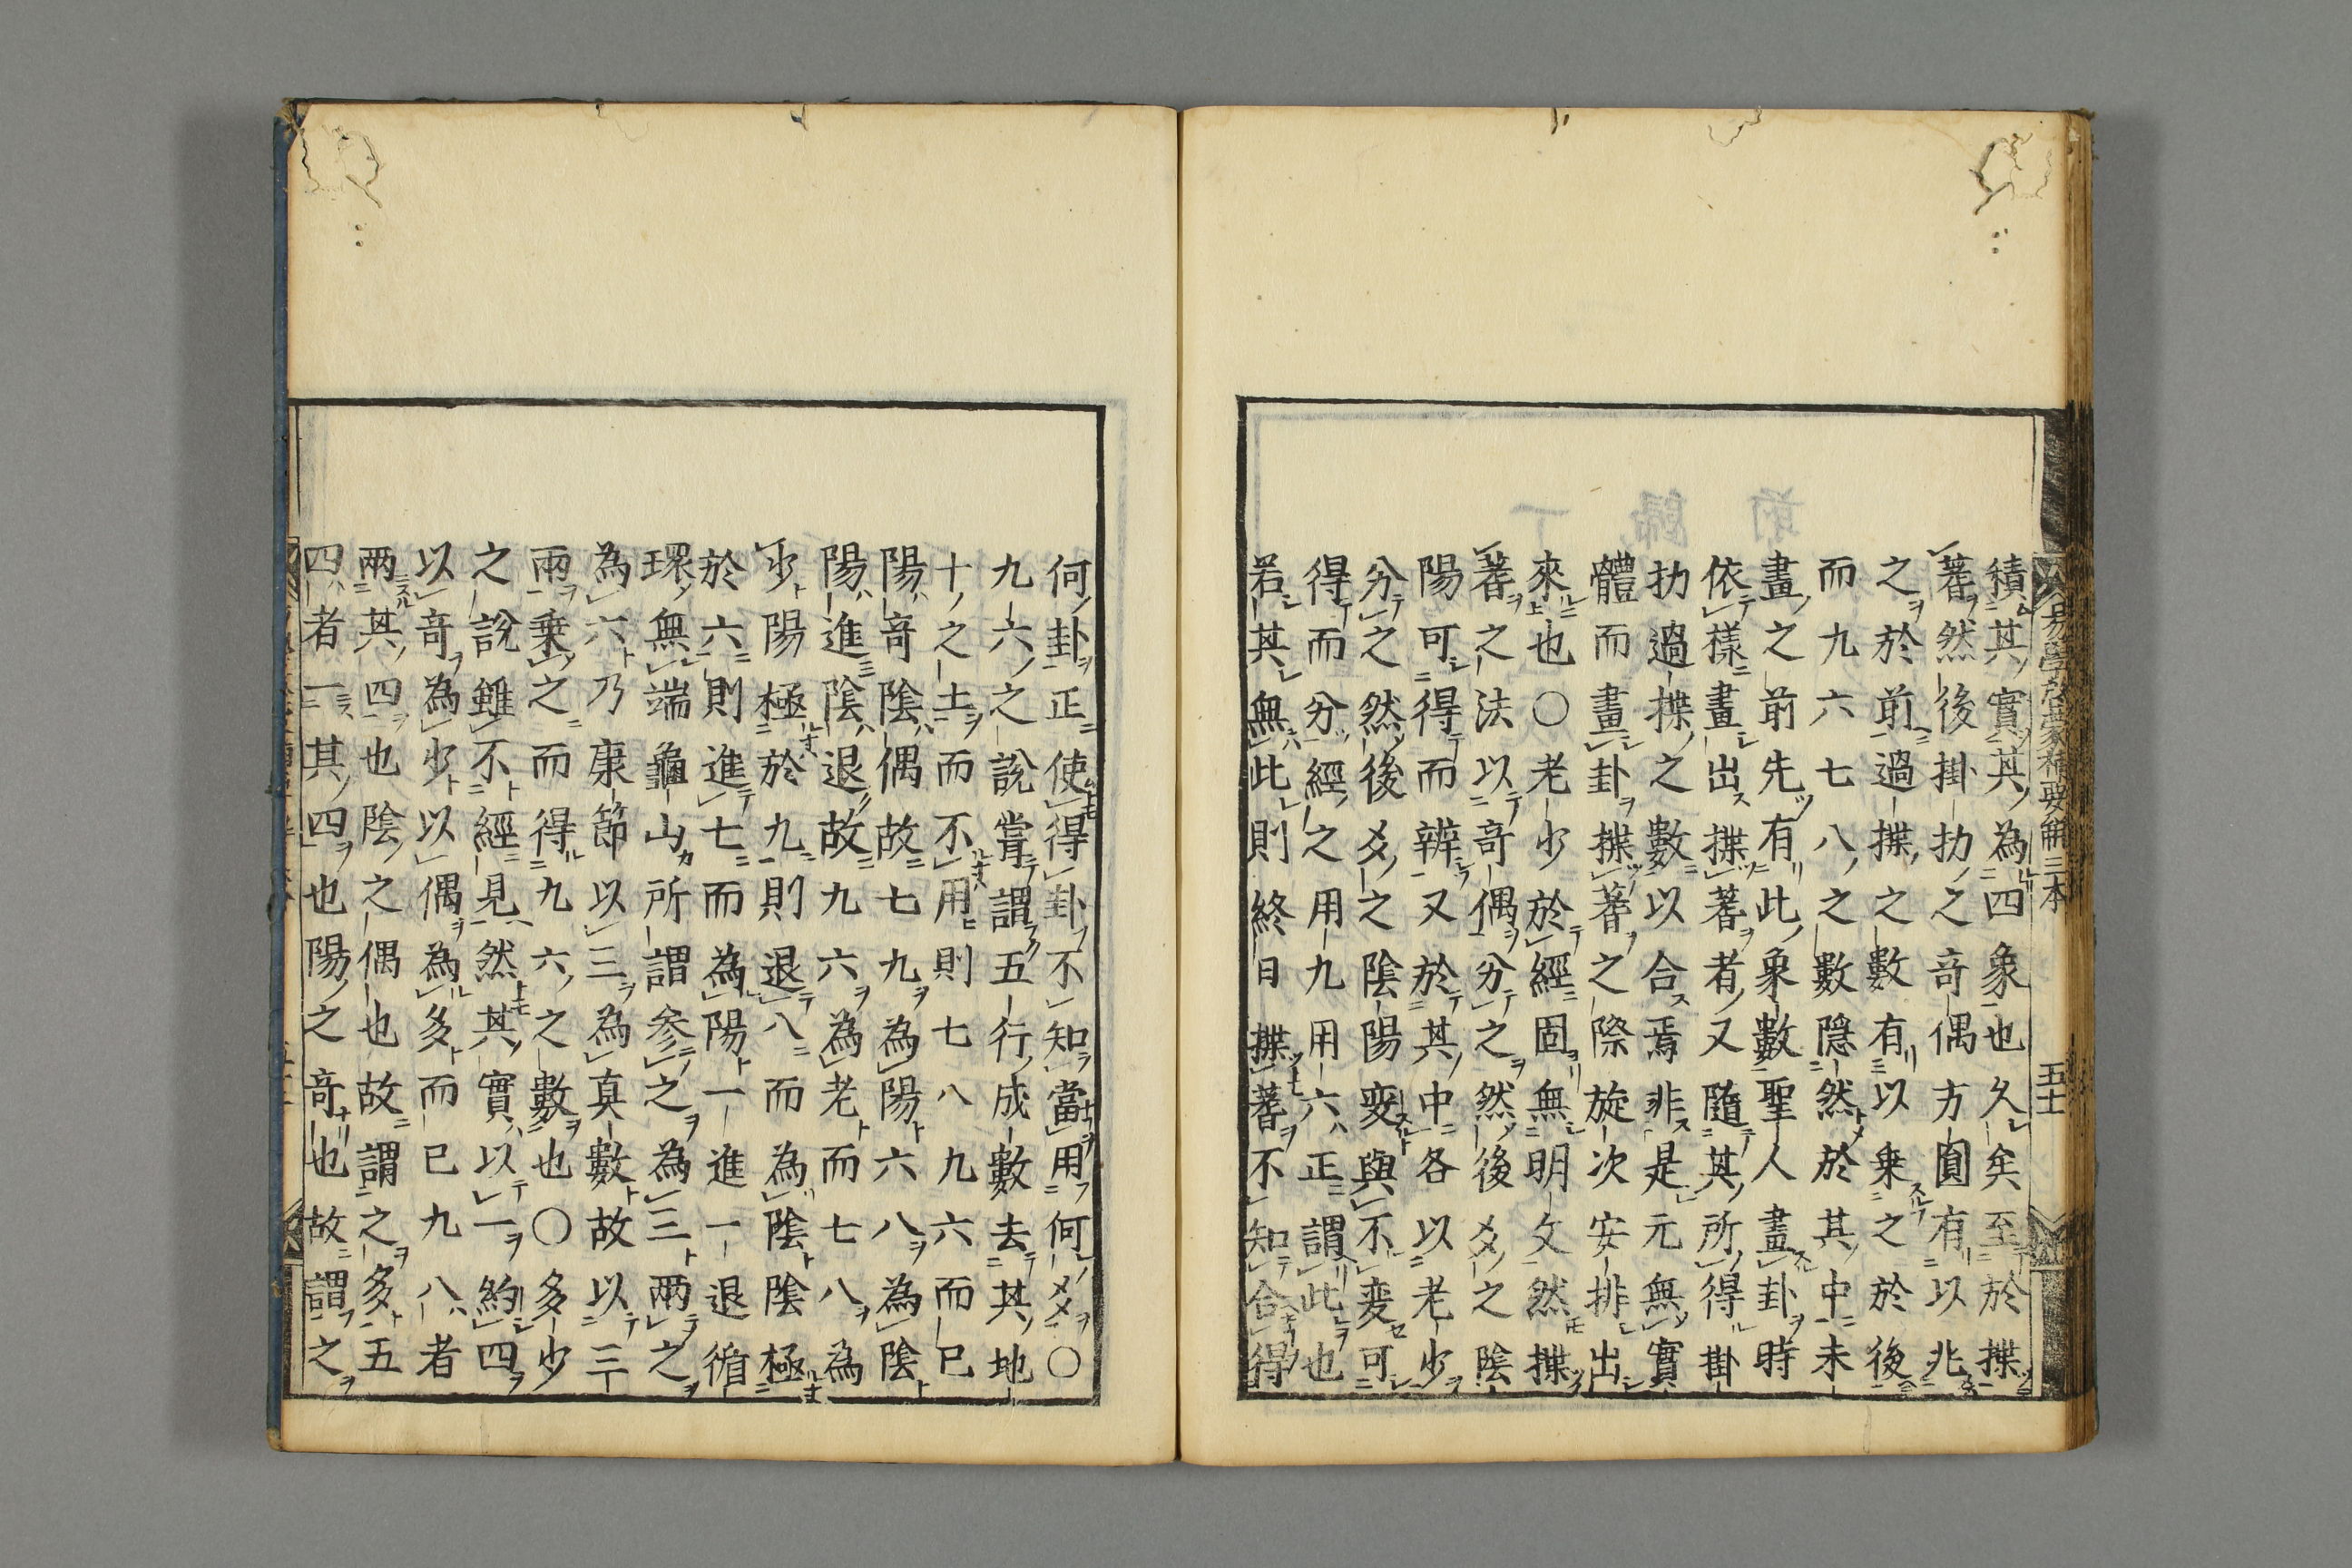 積其實其為四象也久矣至於揲
蓍然後掛扐之奇偶方圓有以兆
之於前過揲之數有以乗之於後
而九六七八之數隠然於其中未
畫之前先有此象數聖人畫卦時
依様畫出揲蓍者又隨其所得掛
扐過揲之數以合焉非是元無實
體而畫卦揲蓍之際旋次安排出
來也〇老少於經固無明文然揲
蓍之法以奇偶分之然後爻之陰
陽可得而辨又於其中各以老少
分之然後爻之陰陽変與不変可
得而分經之用九用六正謂此也
若其無此則終日揲蓍不知合得
何卦正使得卦不知當用何爻〇
九六之說甞謂五行成數去其地
十之土而不用則七八九六而已
陽奇陰偶故七九為陽六八為陰
陽進陰退故九六為老而七八為
少陽極於九則退八而為陰陰極
於六則進七而為陽一進一退循
環無端龜山所謂参之為三兩之
為六乃康節以三為真數故以三
兩乗之而得九六之數也〇多少
之說雖不經見然其實以一約四
以奇為少以偶為多而已九八者
兩其四也陰之偶也故謂之多五
四者一其四也陽之奇也故謂之